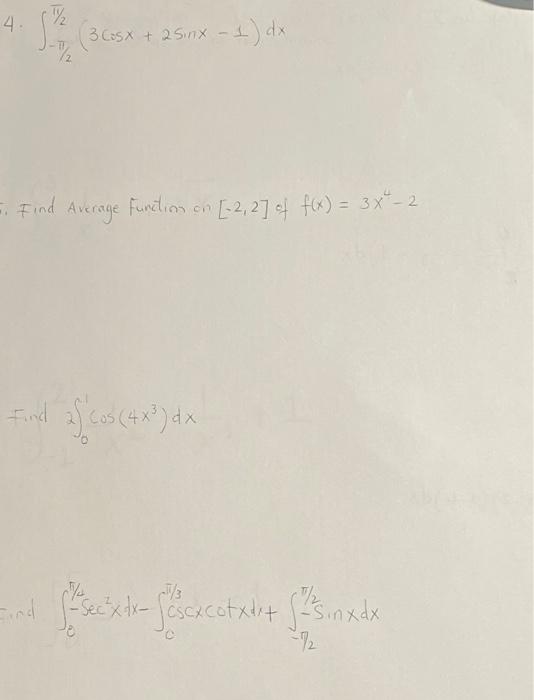 4. ∫_{-π/2}^{π/2} (3cosx + 2sinx - 1) dx
5. Find Average Function on [-2,2] of f(x) = 3x⁴ - 2
Find 2∫_0^1 cos(4x³) dx
Find ∫_0^{π/4} -sec²x dx - ∫_0^{π/3} cscxcotxdx + ∫_{-π/2}^{π/2} -sinxdx